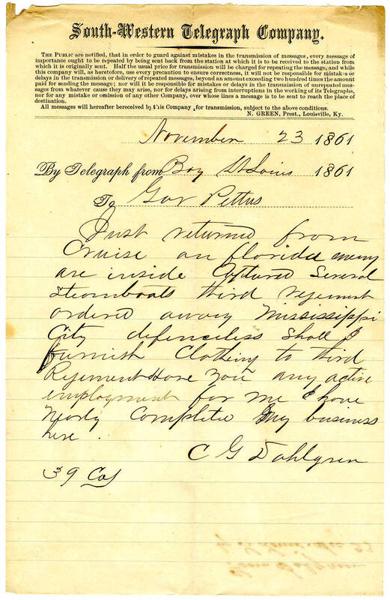 South-Western Telegraph Company.
THE PUBLIC are notified, that in order to guard against mistakes in the transmission of messages, every message of
importance ought to be repeated by being sent back from the station at which it is to be received to the station from
which it is originally sent. Half the usual price for transmission will be charged for repeating the message, and while this
company will, as heretofore, use every precaution to ensure correctness, it will not be responsible for mistakes or
delays in the transmission or delivery of repeated messages, beyond an amount exceeding two hundred times the amount
paid for sending the message; nor will it be responsible for mistakes or delays in the transmission of unrepeated messages
from whatever cause they may arise, nor for delays arising from interruptions in the working of its Telegraphs,
nor for any mistake or omission of any other Company, over whose lines a message is to be sent to reach the place of
destination.
All messages will hereafter be received by this Company for transmission, subject to the above conditions.
N. GREEN, Prest., Louisville, Ky.
November 23 1861
By Telegraph from Bay St Louis 1861
To Gov Pettus
Just returned from
Cruise on florida enemy
are inside Captured Several
Steamboats third regiment
ordered away Mississippi
City defenceless Shall I
furnish Clothing to third
Regiment Have You any active
employment for me I have
Nearly Completed My business
here.
C G Dahlgren
39 Col